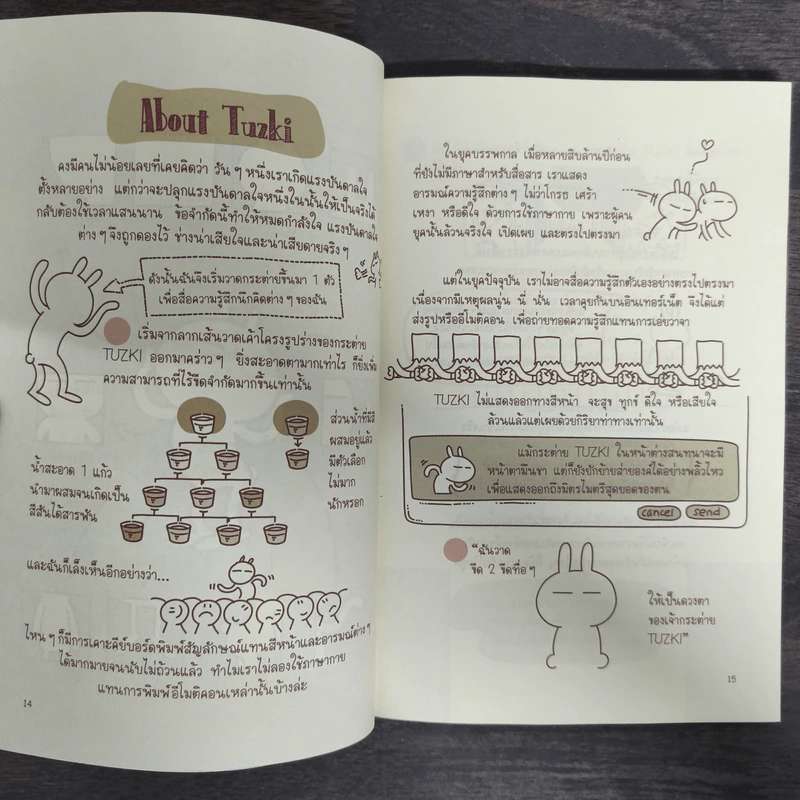 About Tuzki
คงมีคนไม่น้อยเลยที่เคยคิดว่า วัน ๆ หนึ่งเราเกิดแรงบันดาลใจ
ตั้งหลายอย่าง แต่กว่าจะปลุกแรงบันดาลใจหนึ่งในนั้นให้เป็นจริงได้
กลับต้องใช้เวลาแสนนาน ข้อจำกัดนี้ทำให้หมดกำลังใจ แรงบันดาลใจ
ต่าง ๆ จึงถูกดองไว้ ช่างน่าเสียใจและน่าเสียดายจริง ๆ
ดังนั้นฉันจึงเริ่มวาดกระต่ายขึ้นมา 1 ตัว
เพื่อสื่อความรู้สึกนึกคิดต่าง ๆ ของฉัน
เริ่มจากลากเส้นวาดเค้าโครงรูปร่างของกระต่าย
TUZKI ออกมาคร่าว ๆ ยิ่งสะอาดตามากเท่าไร ก็ยิ่งเพิ่ม
ความสามารถที่ไร้ขีดจำกัดมากขึ้นเท่านั้น
น้ำสะอาด 1 แก้ว
นำมาผสมจนเกิดเป็น
สีสันได้สารพัน
ส่วนน้ำที่มีสี
ผสมอยู่แล้ว
มีตัวเลือก
ไม่มาก
นักหรอก
และฉันก็เล็งเห็นอีกอย่างว่า...
ไหน ๆ ก็มีการเคาะคีย์บอร์ดพิมพ์สัญลักษณ์แทนสีหน้าและอารมณ์ต่าง ๆ
ได้มากมายจนนับไม่ถ้วนแล้ว ทำไมเราไม่ลองใช้ภาษากาย
แทนการพิมพ์อีโมติคอนเหล่านั้นบ้างล่ะ
14
ในยุคบรรพกาล เมื่อหลายสิบล้านปีก่อน
ที่ยังไม่มีภาษาสำหรับสื่อสาร เราแสดง
อารมณ์ความรู้สึกต่าง ๆ ไม่ว่าโกรธ เศร้า
เหงา หรือดีใจ ด้วยการใช้ภาษากาย เพราะผู้คน
ยุคนั้นล้วนจริงใจ เปิดเผย และตรงไปตรงมา
แต่ในยุคปัจจุบัน เราไม่อาจสื่อความรู้สึกตัวเองอย่างตรงไปตรงมา
เนื่องจากมีเหตุผลนู่น นี่ นั่น เวลาคุยกันบนอินเทอร์เน็ต จึงได้แต่
ส่งรูปหรืออีโมติคอน เพื่อถ่ายทอดความรู้สึกแทนการเอ่ยวาจา
TUZKI ไม่แสดงออกทางสีหน้า จะสุข ทุกข์ ดีใจ หรือเสียใจ
ล้วนแล้วแต่เผยด้วยกิริยาท่าทางเท่านั้น
แม้กระต่าย TUZKI ในหน้าต่างสนทนาจะมี
หน้าตามึนชา แต่ก็ยังบักย้ายส่ายองค์ได้อย่างพลิ้วไหว
เพื่อแสดงออกถึงมิตรไมตรีสุดยอดของตน
cancel send
"ฉันวาด
ขีด 2 ขีดทื่อ ๆ
ให้เป็นดวงตา
ของเจ้ากระต่าย
TUZKI"
15